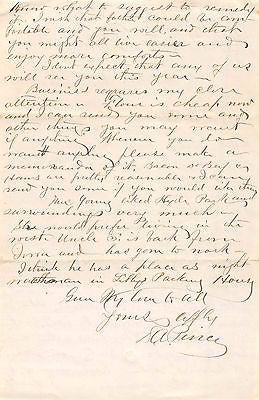 to suggest to remedy
it. I wish that father could be com-
fortable and you will, and that
you might all live easier and
enjoy more comforts —
I dont expect that any of us
will see you this year
Business requires my close
attention. Flour is cheap now
and I can send you some and
other things you may want
if anything. Whenever you do
want anything please make a
memorandum of it,
Hams are pretty reasonable & I can
send you some if you would like them
liked Hyde Park and
surroundings very much.
She would prefer living in the
west. Uncle is back from
Iowa and has gone to work
I think he has a place as night
watchman in Libbys Packing House
Give My love to all
Yours